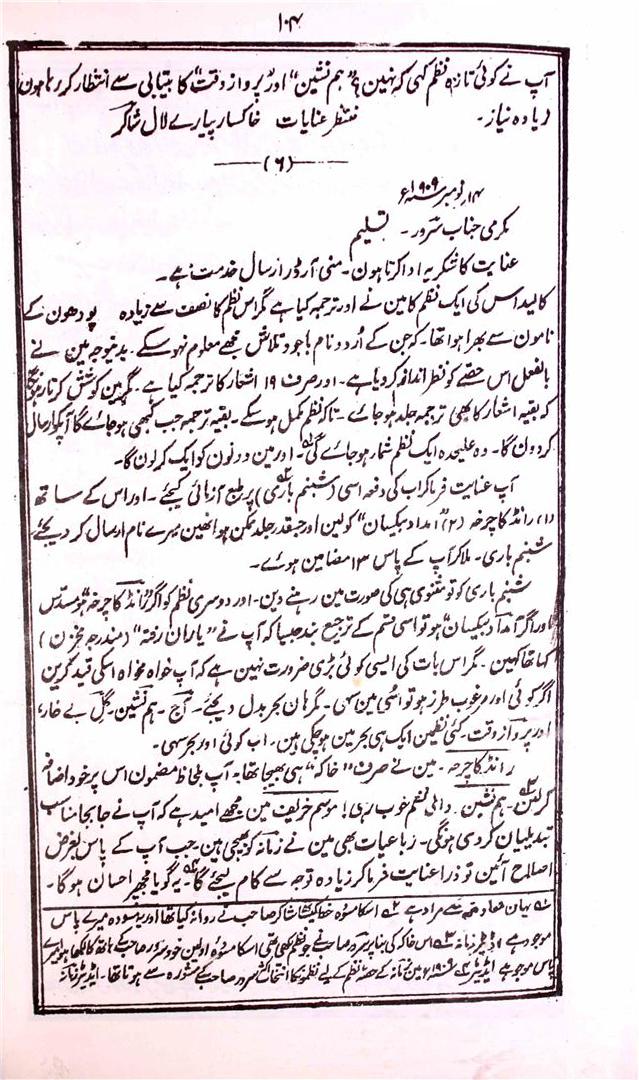 ۱۰۴
آپ نے کوئی تازہ نظم کہی کہ نہین؟ "ہم نشین" اور "پرواز وقت" کا بیتابی سے انتظار کر رہا ہون
زیادہ نیاز۔ منتظر عنایات خاکسار پیارے لال شاکر
(۶)
۱۴ نومبر ۱۹۰۹ء
مکرمی جناب سرور۔ تسلیم
عنایت کا شکریہ ادا کرتا ہون۔ منی آرڈر ارسال خدمت ہے۔
کالیداس کی ایک نظم کا مین نے اور ترجمہ کیا ہے مگر اس نظم کا نصف سے زیادہ پودھون کے
نامون سے بھرا ہوا تھا۔ کہ جن کے اُردو نام باوجود تلاش مجھے معلوم نہو سکے۔ بدینوجہ مین نے
بالفعل اس حصّے کو نظر انداز کر دیا ہے۔ اور صرف ۱۹ اشعار کا ترجمہ کیا ہے۔ مگر مین کوشش کر رہا ہون
کہ بقیہ اشعار کا بھی ترجمہ جلد ہو جائے۔ تاکہ نظم مکمل ہو سکے۔ بقیہ ترجمہ جب کبھی ہو جائے گا آپکو ارسال
کر دون گا۔ وہ علیحدہ ایک نظم شمار ہو جائے گی۔ اور مین دونون کو ایک کر لون گا۔
آپ عنایت فرما کر اب کی دفعہ اسی (شبنم باری) پر طبع آزمائی کیجئے۔ اور اس کے ساتھ
(۱) رانڈ کا چرخہ (۲) "امداد بیکسان" کو لین اور جسقدر جلد ممکن ہو انھین میرے نام ارسال کر دیجئے
شبنم باری۔ ملا کر آپ کے پاس ۱۳ مضامین ہوئے۔
شبنم باری کو تو مثنوی ہی کی صورت مین رہنے دین۔ اور دوسری نظم کو اگر "رانڈ کا چرخہ" ہو مسدس
اور اگر "امداد بیکسان" ہو تو اسی قسم کے ترجیع بند جیسا کہ آپ نے "یاران رفتہ" (مندرجہ مخزن)
کہا تھا کہین۔ مگر اس بات کی ایسی کوئی بڑی ضرورت نہین ہے کہ آپ خواہ مخواہ اسکی قید کرین
اگر کوئی اور مرغوب طرز ہو تو اُسی مین سہی۔ مگر ہان بحر بدل دیجئے۔ آج۔ ہم نشین۔ گل بے خار،
اور پرواز وقت۔ کئی نظمین ایک ہی بحر مین ہو چکی ہین۔ اب کوئی اور بحر سہی۔
رانڈ کا چرخہ۔ مین نے صرف "خاکہ" ہی بھیجا تھا۔ آپ بلحاظ مضمون اس پر خود اضافہ
کر لین۔ ہم نشین۔ والی نظم خوب رہی! موسم خریف مین مجھے امید ہے کہ آپ نے جا بجا مناسب
تبدیلیان کر دی ہونگی۔ رباعیات بھی مین نے زمانہ کو بھیجی ہین۔ جب آپ کے پاس بغرض
اصلاح آئین تو ذرا عنایت فرما کر زیادہ توجہ سے کام لیجئے گا۔ یہ گویا مجھپر احسان ہو گا۔
۱؎ یہان معاوضہ سے مراد ہے ۲؎ اسکا مسودہ شاکر صاحب نے روانہ کیا تھا اور یہ مسودہ میرے پاس
موجود ہے ایڈیٹر زمانہ ۳؎ اس خاکہ کی بنا پر سرور صاحب نے جو نظم لکھی تھی اسکا مسودہ اولین خود سرور صاحب کے ہاتھ کا لکھا ہوا میرے
پاس موجود ہے ایڈیٹر ۴؎ ۱۹۰۹ء مین زمانہ کے حصّہ نظم کے لیے نظمونکا انتخاب سرور صاحب کے مشورہ سے ہوتا تھا۔ ایڈیٹر زمانہ